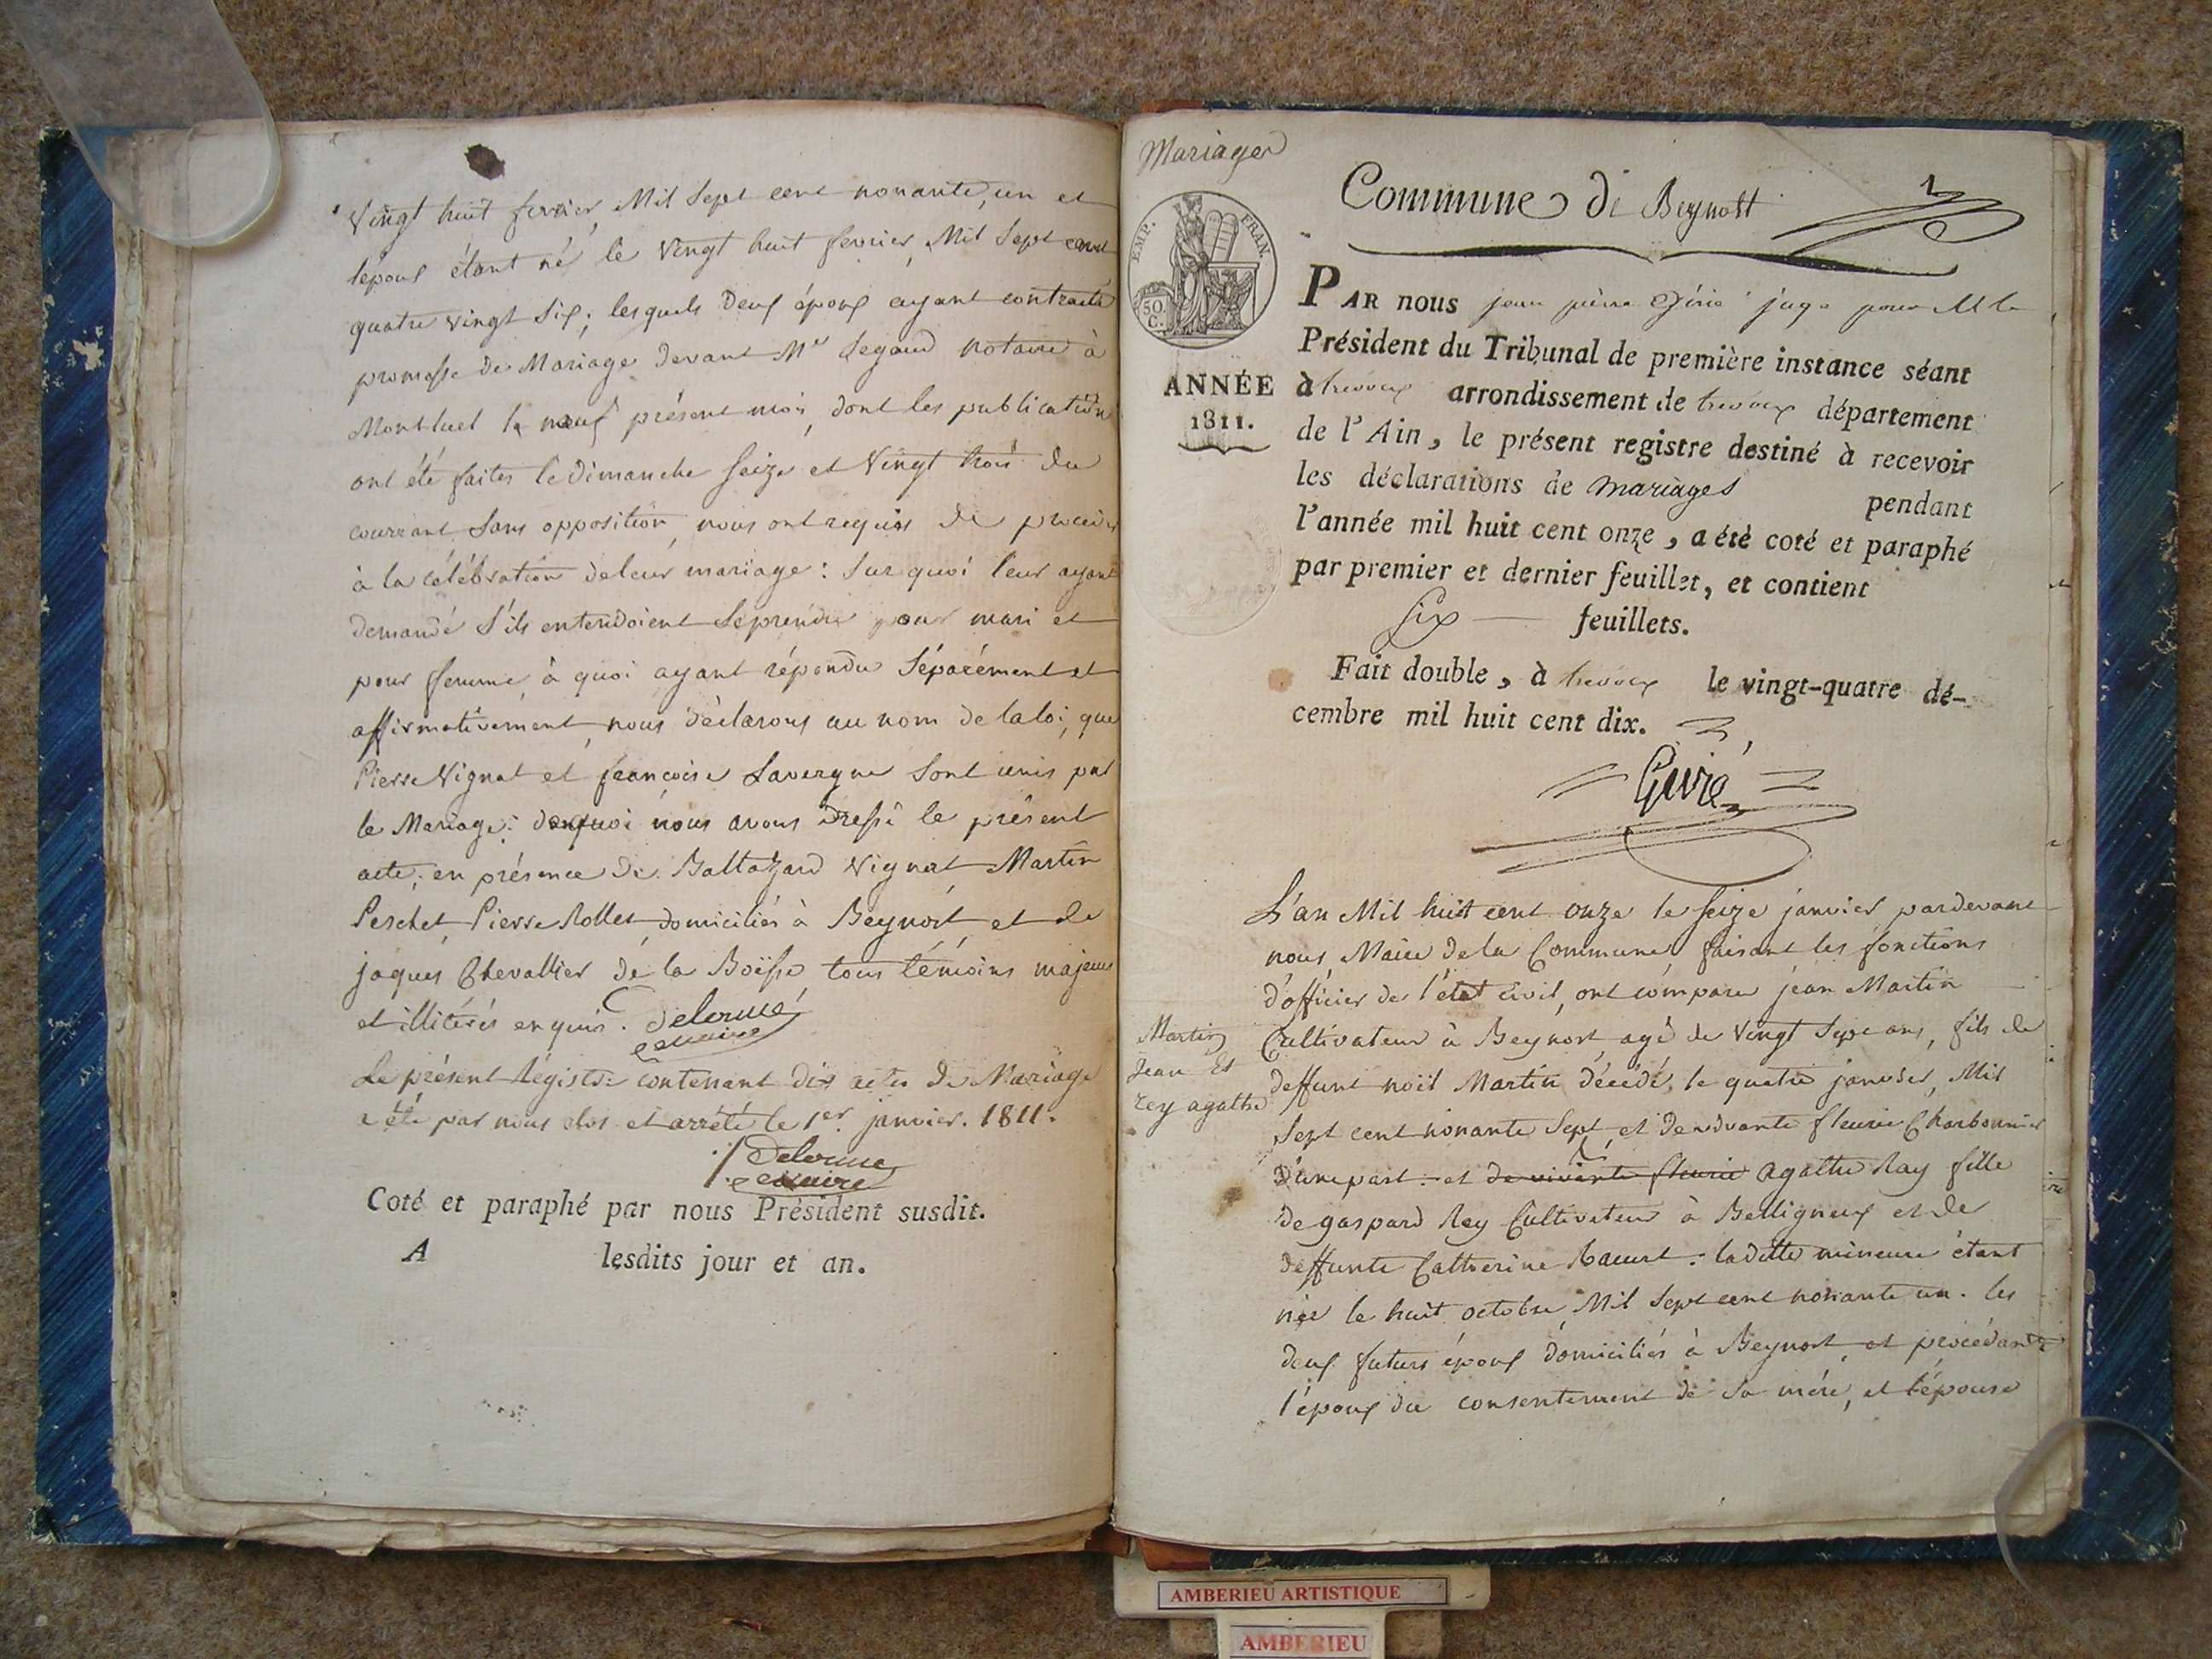 Vingt huit fevrier Mil Sept cent nonante, un et
lepoux étant né le Vingt huit fevrier Mil Sept cent
quatre vingt Six; lesquels Deux époux ayant contracté
promesse de Mariage devant Me Segaud notaire à
Montluel le neuf présent mois, dont les publication
ont été faites le dimanche Seize et Vingt trois du
courrant Sans opposition, nous ont requis de proceder
à la célébration de leur mariage: Sur quoi leur ayant
demandé S'ils entendoient Se prendre pour mari et
pour femme, à quoi ayant répondu Séparément et
affirmativement, nous déclarons au nom de la loi, que
Pierre Vignat et francoise Lavergne Sont unis par
le Mariage: de quoi nous avons dressé le présent
acte; en présence de Baltazard Vignat Martin
Perchet, Pierre Rollet, domiciliés à Beynost, et de
jaques Chevallier de la Boïsse, tous témoins majeurs
et illitérés enquis. Delorme
maire
Le présent Régistre contenant dix actes de Mariage
a été par nous clos et arrété le 1er janvier. 1811.
Delorme
maire
Coté et paraphé par nous Président susdit.
A lesdits jour et an.
Mariages
Commune de Beynost
EMP. FRAN.
50. C.
ANNÉE
1811.
PAR nous jean pierre juge pour M le
Président du Tribunal de première instance séant
à trevoux arrondissement de trevoux département
de l'Ain, le présent registre destiné à recevoir
les déclarations de mariages pendant
l'année mil huit cent onze, a été coté et paraphé
par premier et dernier feuillet, et contient
Six feuillets.
Fait double, à trevoux le vingt-quatre dé-
cembre mil huit cent dix.
L'an Mil huit cent onze le Seize janvier pardevant
nous, Maire de la Commune, faisant les fonctions
d'officier de l'état civil, ont comparu jean Martin
Cultivateur à Beynost, agé de Vingt Sept ans, fils de
deffunt noël Martin, décédé, le quatre janvier, Mil
Sept cent nonante Sept, et de vivante fleurie Charbonnier
D'une part: et de vivante fleurie agathe Ray fille
de gaspard Rey Cultivateur à Belligneux et de
deffunte Catherine: ladite mineure étant
née le huit octobre Mil Sept cent nonante un. les
deux futurs époux domiciliés à Beynost, et procédants
l'époux du consentement de Sa mére, et l'épouse
Martin
Jean Et
rey agathe
AMBERIEU ARTISTIQUE
AMBERIEU